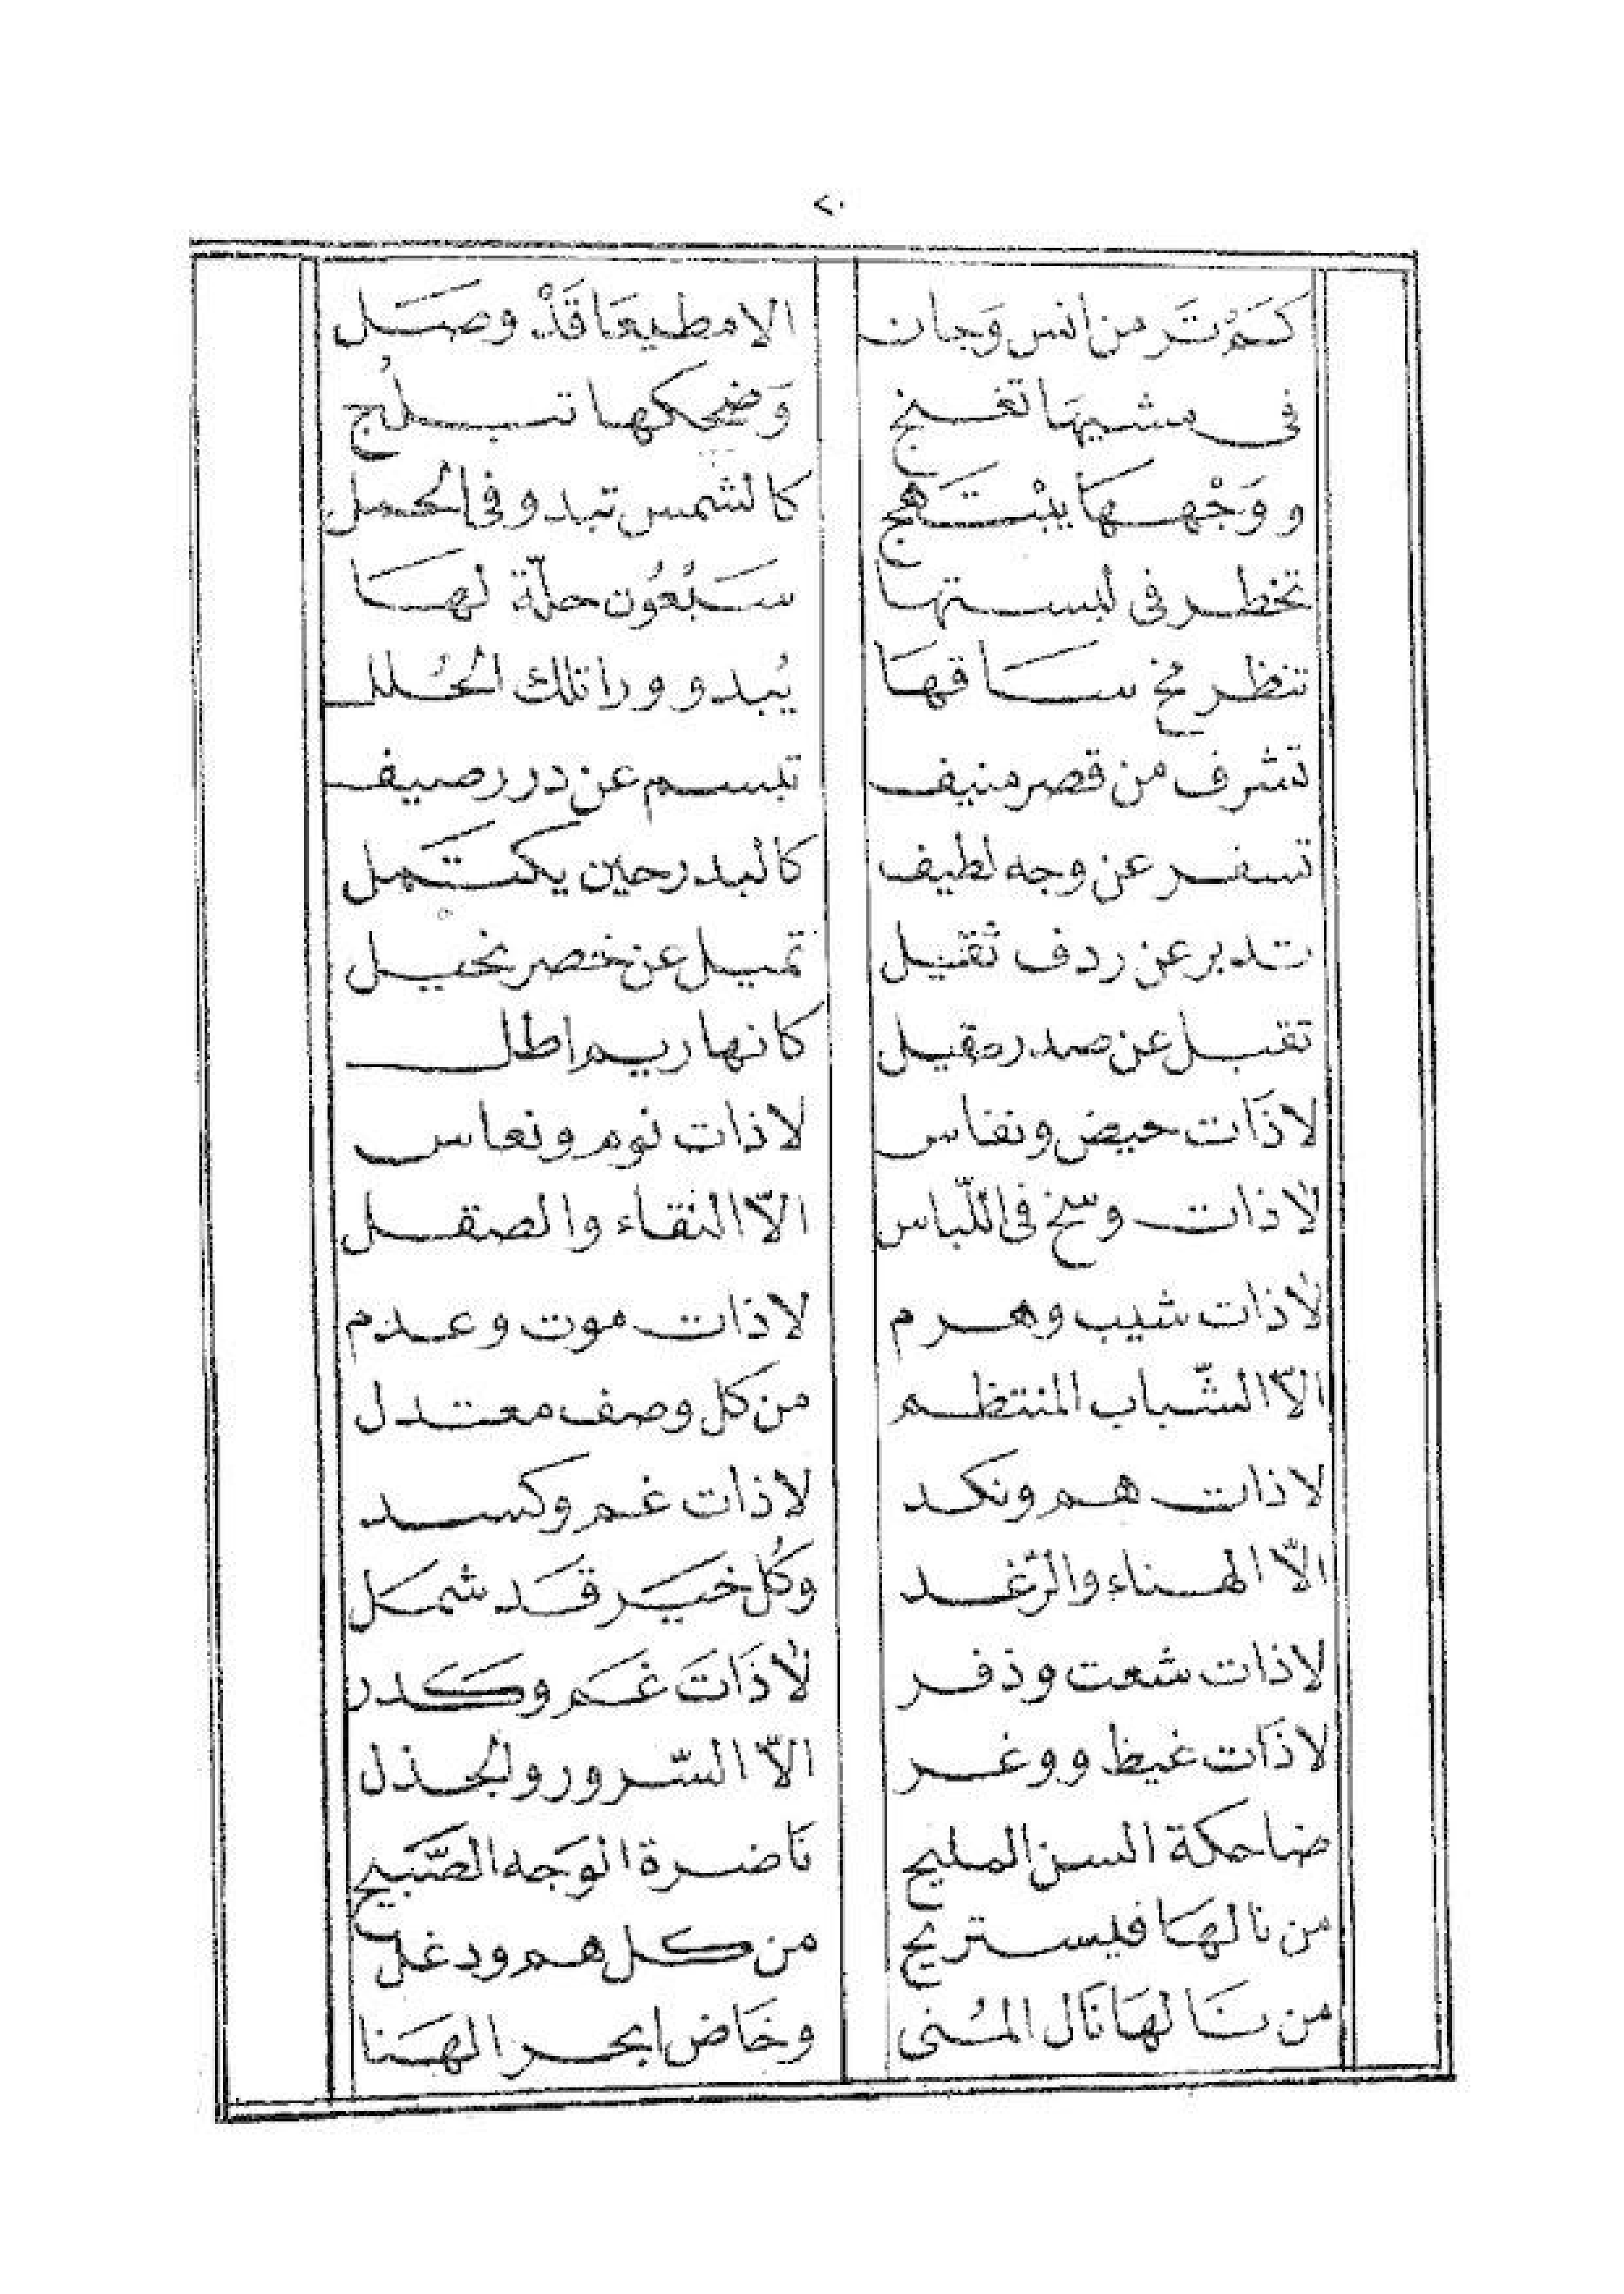 ٢٠
كَمْ تَر من انس وَجان الا مطيعَا قَدْ وصَل
فى مشيهَا تغنج وَضحكها تبلُج
و وَجْهها يبْتَهج كالشمس تبدو فى الحمل
تخطر فى لبستها سَبْعُون حلّة لهَا
تنظر مخ ساقهَا يُبدو ورا تلك الحُلل
تشرف من قصر منيف تبسم عن درر صيف
تسفر عن وجه لطيف كالبدر حين يكتَمل
تدبر عن ردف ثقيل تميل عن خصر نحيل
تقبل عن صدر صقيل كانها ريم اطل
لاذَات حيض ونفاس لاذات نوم ونعاس
لاذات وسخ فى اللّباس الاّ النقاء والصقل
لاذات شيب وهرم لاذات موت وعدم
الاّ الشّباب المنتظم من كل وصف معتدل
لاذات هم ونكد لاذات غم وكسد
الاّ الهناء والرّغد وكُل خيَر قَد شمَل
لاذات شعت وذفر لاذَاتَ غَم وكدر
لاذَات غيظ ووغر الاّ السّرور والجذل
ضاحكة السن المليح نَاضرة الوَجه الصَّبَيح
من نالهَا فيستريح من كل هم ودغل
من نَالهَا نَال المُنى وخَاض ابحر الهَنا